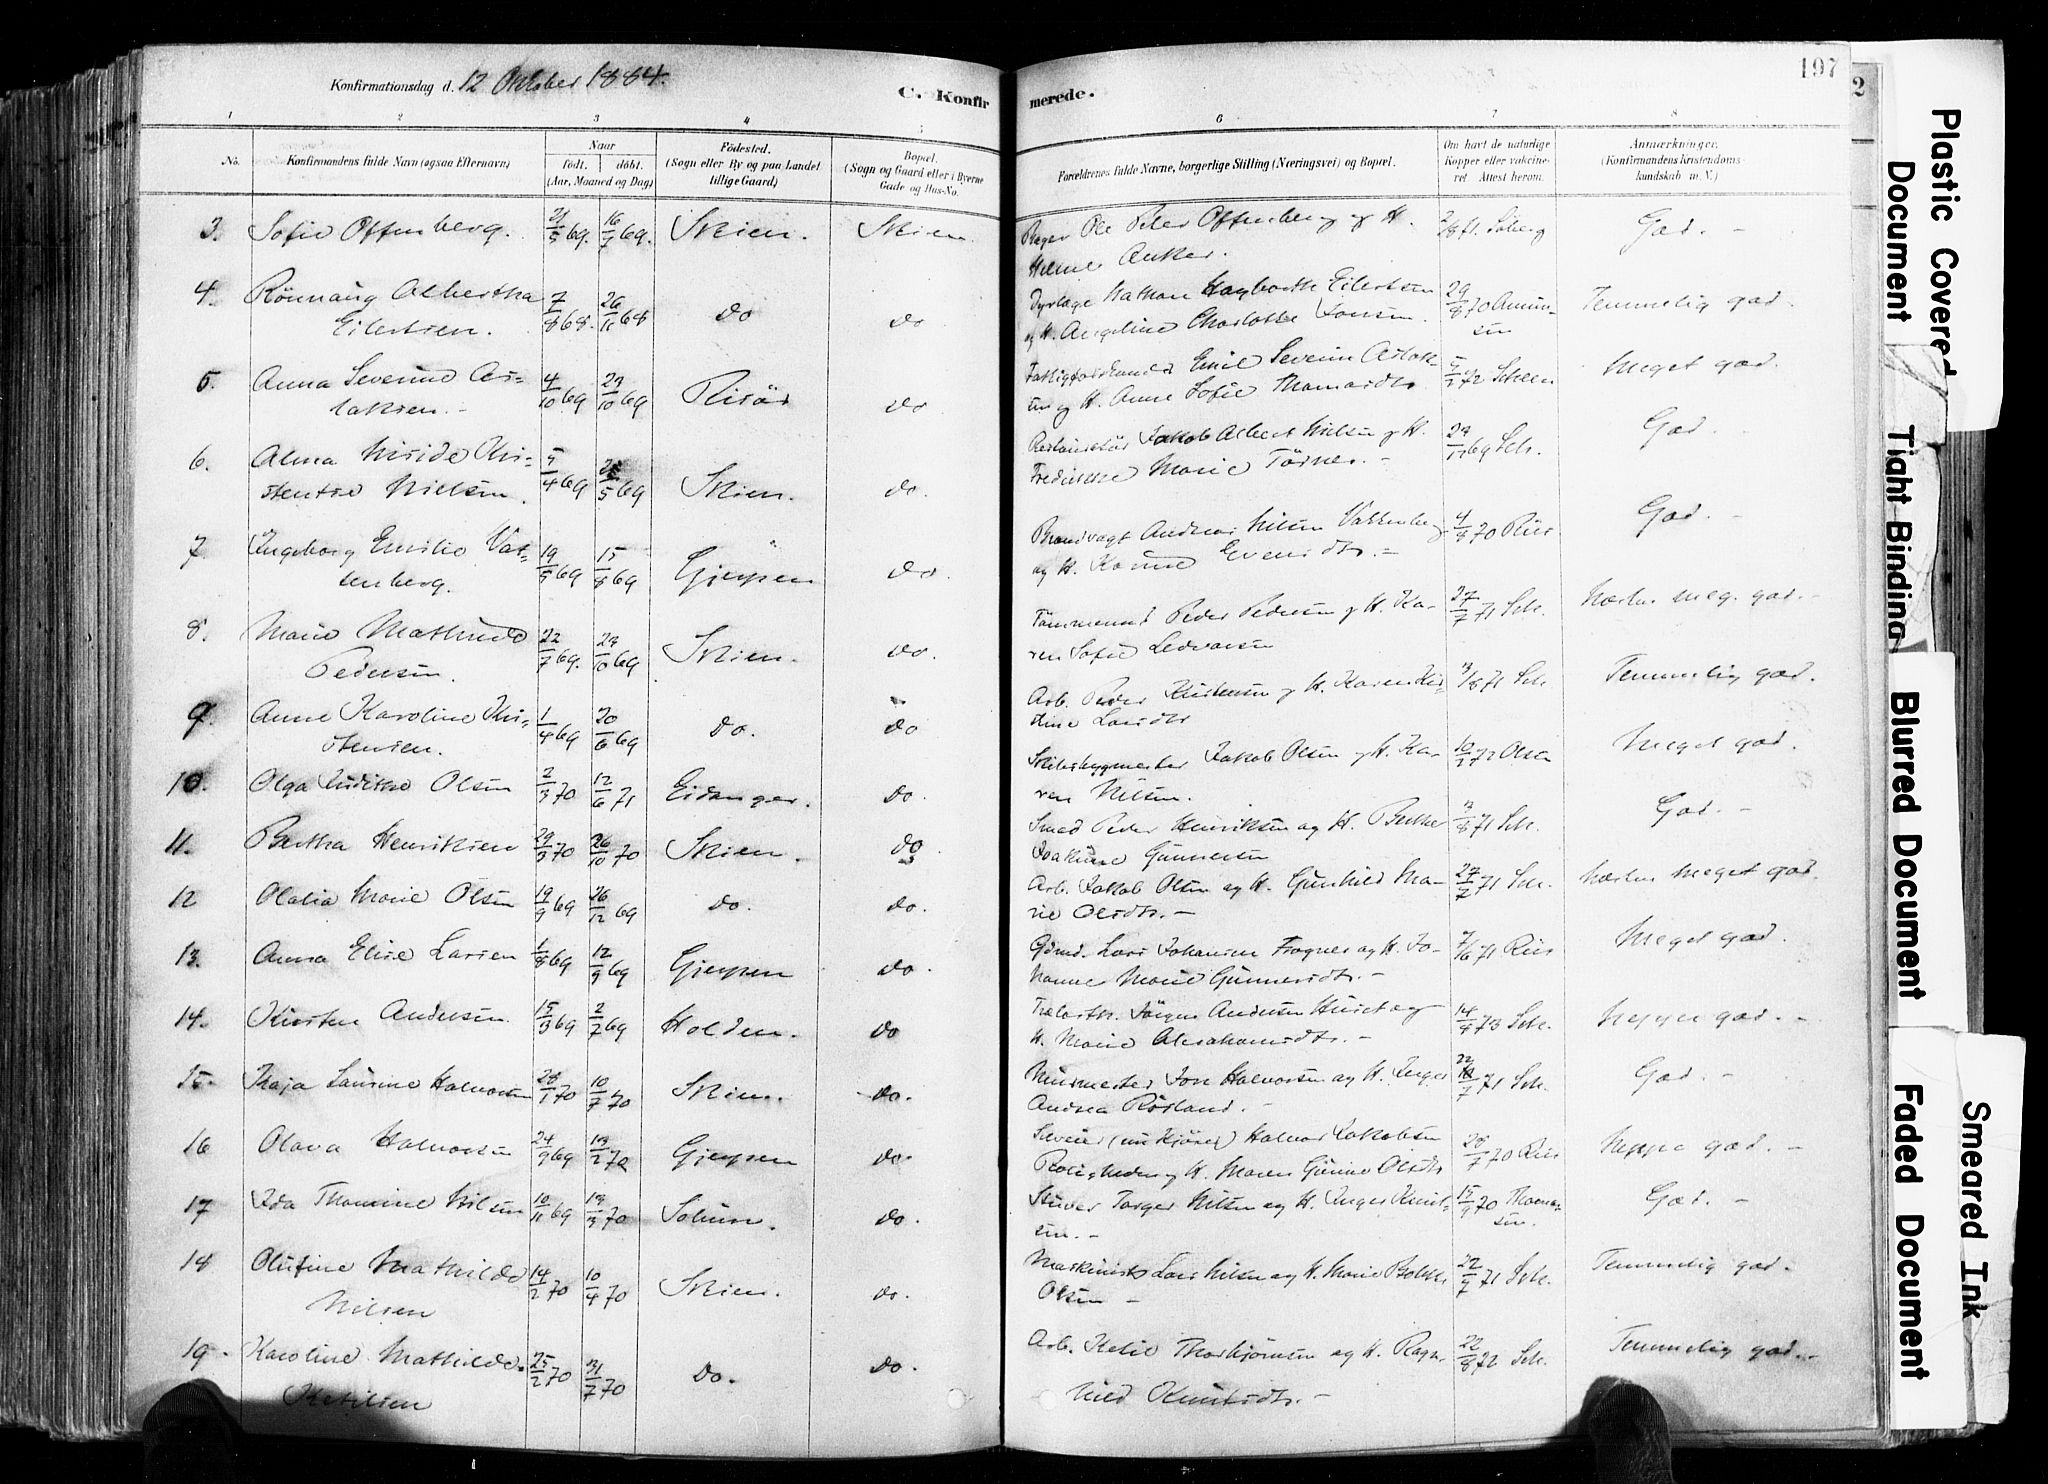 Konfirmationsdag d. 12 Oktober 1884.
C. Konfirmerede.
197
2
1 2 3 4 5 6 7 8
No.
Konfirmandens fulde Navn (ogsaa Efternavn)
Naar
født. døbt.
(Aar, Maaned og Dag)
Födested.
(Sogn eller By og paa Landet tillige Gaard)
Bopæl.
(Sogn og Gaard eller i Byerne Gade og Hus-No.
Forældrenes fulde Navne, borgerlige Stilling (Næringsvei) og Bopæl.
Om havt de naturlige Kopper eller vakcineret. Attest herom.
Anmærkninger.
(Konfirmandens Kristendomskundskab m.V.)
3. Sofie Offenberg. 21/5 69. 16/7 69. Skien. Skien. Ole Peter Offenberg og H. 2/8 71. Solberg God. -
Anker.
4. Rönnaug Albertha 7/8 68. 26/11 68 do do Dyrlæge Nathan Hagbarth Eilertsen 29/8 70 Amun- Temmelig god.
Eilertsen. og H. Angeline Charlotte Jonsen. sen
5. Anna Severine As- 4/10 69 23/10 69 Risör do Fattigforstander Emil Severin Aslak- Scheen Meget god.
laksen. - sen og H. Anne Sofie Thomasdtr.
6. Alma Kri- 5/4 69 5 69 Skien. do. Restauratör Jakob Albert Nilsen og H. 69 Sch. God. -
stense Nielsen. Fredrikke Marie Törner. -
7 Ingeborg Emilie Vat- 19/5 69 15/8 69 Gjerpen do. Brandvagt Andreas Nilsen Vattenberg 70 Riis. God. -
tenberg. og H. Karine Evensdtr. -
8. Marie Mathilde 22/7 69. 23/10 69 Skien. do. Tömmermd Peder Pedersen og H. Ka- 27/7 71 Sch. Næsten meg. god. -
Pedersen. ren Sofie Ledvarsen
9. Anne Karoline Kri- 1/4 69 20/6 69 do. do Arb. Peder Kristensen og H. Karen Kir- /8 71 Sch Temmelig god.
stensen. stine Larsdtr
10. Olga Judithe Olsen 2/3 70 12/6 71 Eidanger. do. Skibsbygmester Jakob Olsen og H. Ka- 72 Olsen Meget god.
ren Nilsen.
11. Bertha Henriksen 29/3 70 26/10 70 Skien. do Smed Peder Henriksen og H. Berthe /8 71 Sch. God. -
Joakime Gunnersen
12 Olalia Marie Olsen 19/9 69 26/12 69 do. do. Arb. Jakob Olsen og H. Gunhild Ma- 27/7 71 Sch. Næsten meget god.
rie Olsdtr. -
13. Anna Elise Larsen 1/8 69 12/9 69 Gjerpen do. Gdmd. Lars Johansen Frogner og H. Jo- 7/6 71 Riis Meget god.
hanne Marie Gunnersdtr. -
14. Kirsten Andersen 15/3 69 2/7 69 Holden. do Jörgen Andersen og 14/ 73 Sch. Neppe god. -
H. Marie Abrahamsdtr. -
15. Kaja Laurine Halvorsen 28/1 70 10/7 70 Skien. do. Murmester Jon Halvorsen og H. Inger 22/7 71 Sch. God. -
Andrea Rösland. -
16 Olava Halvorsen 24/9 69 13/2 70 Gjerpen do. Halvor Jakobsen 28/7 70 Riis Neppe god. -
og H. Maren Gurine Olsdtr
17 Ida Thomine Nilsen 10/11 69 13/3 70 Solum. do. Stuver Torger Nilsen og H. Inger Knut- 15/9 70 Thomas- God. -
sen. - sen.
18 Olufine Mathilde 14/2 70 10/4 70 Skien. do. Maskinist Lars Nilsen og H. Marie 22/ 71 Sch. Temmelig god.
Nilsen Olsen -
19. Karoline Mathilde 25/2 70 31/7 70 Do. do. Arb. Ketil Thorbjörnsen og H. Ragn- 22/8 72 Sch. Temmelig god. -
Ketilsen hild Knutsdtr. -
Plastic Covered Document
Tight Binding
Blurred Document
Faded Document
Smeared Ink